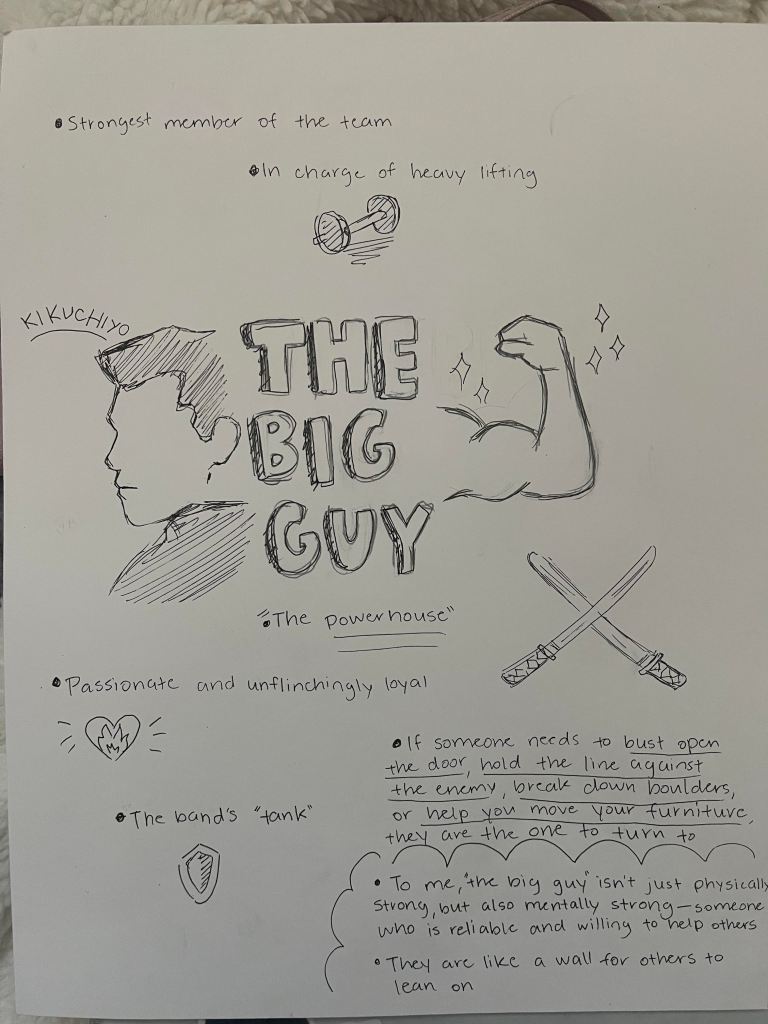 •Strongest member of the team
•In charge of heavy lifting
KIKUCHIYO
THE
BIG
GUY
•"The powerhouse"
•Passionate and unflinchingly loyal
•If someone needs to bust open
the door, hold the line against
the enemy, break down boulders,
or help you move your furniture,
they are the one to turn to
•The band's "tank"
• To me, "the big guy" isn't just physically
strong, but also mentally strong—someone
who is reliable and willing to help others
• They are like a wall for others to
lean on